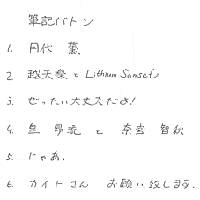 筆記バトン
1. 月代 薫
2. 越天楽 と Lithium Sunset
3. ぜったい大丈夫だよ!
4. 皇 昴流 と 奈吉 智秋
5. じゃあ、
6. カイトさん お願い致します。